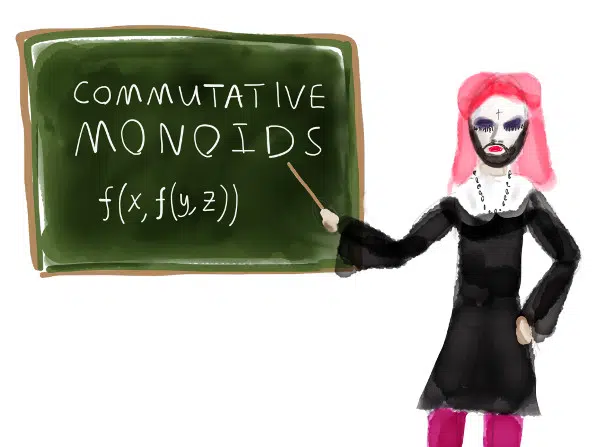 COMMUTATIVE
MONOIDS
f(x, f(y, z))